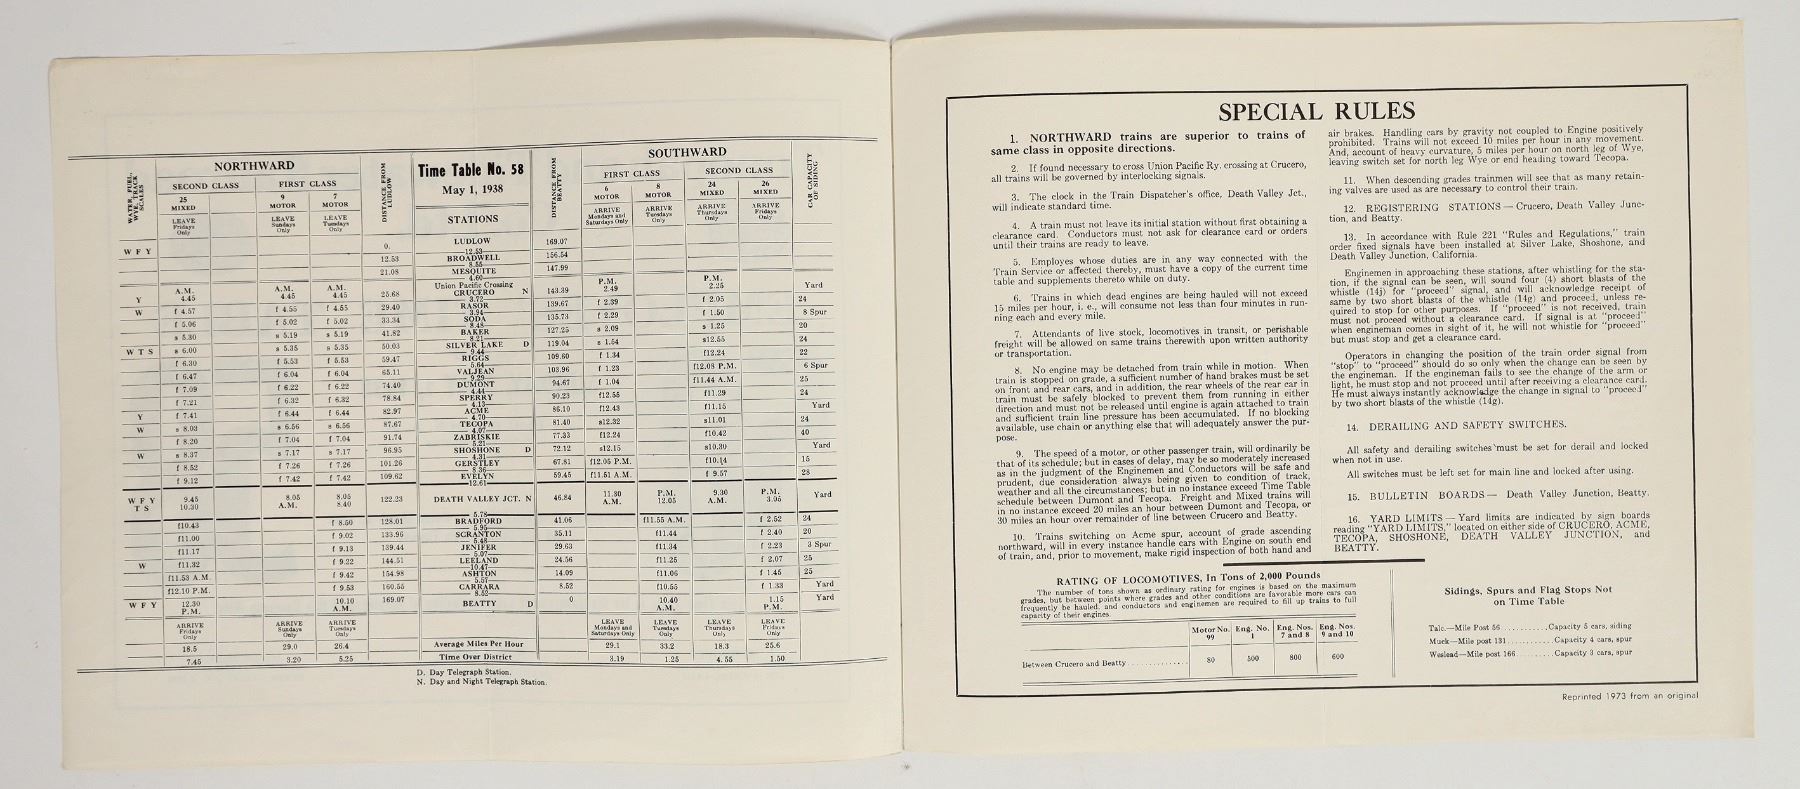 NORTHWARD
SOUTHWARD
WATER, FUEL, WYE, TRACK SCALES
SECOND CLASS
FIRST CLASS
DISTANCE FROM LUDLOW
Time Table No. 58
May 1, 1938
STATIONS
DISTANCE FROM BEATTY
FIRST CLASS
SECOND CLASS
CAR CAPACITY OF SIDING
25 MIXED
9 MOTOR
7 MOTOR
6 MOTOR
8 MOTOR
24 MIXED
26 MIXED
LEAVE Fridays Only
LEAVE Sundays Only
LEAVE Tuesdays Only
ARRIVE Mondays and Saturdays Only
ARRIVE Tuesdays Only
ARRIVE Thursdays Only
ARRIVE Fridays Only
W F Y 0. LUDLOW 169.07
12.53
12.53 BROADWELL 156.54
8.55
21.08 MESQUITE 147.99
4.60
Y A.M. 4.45 A.M. 4.45 A.M. 4.45 25.68 Union Pacific Crossing CRUCERO N 143.39 P.M. 2.49 P.M. 2.25 Yard
3.72
W f 4.57 f 4.55 f 4.55 29.40 RASOR 139.67 f 2.39 f 2.05 24
3.94
f 5.06 f 5.02 f 5.02 33.34 SODA 135.73 f 2.29 f 1.50 8 Spur
8.48
s 5.30 s 5.19 s 5.19 41.82 BAKER 127.25 s 2.09 s 1.25 20
8.21
W T S s 6.00 s 5.35 s 5.35 50.03 SILVER LAKE D 119.04 s 1.54 s12.55 24
9.44
f 6.30 f 5.53 f 5.53 59.47 RIGGS 109.60 f 1.34 f12.24 22
5.64
f 6.47 f 6.04 f 6.04 65.11 VALJEAN 103.96 f 1.23 f12.08 P.M. 6 Spur
9.29
f 7.09 f 6.22 f 6.22 74.40 DUMONT 94.67 f 1.04 f11.44 A.M. 25
4.44
f 7.21 f 6.32 f 6.32 78.84 SPERRY 90.23 f12.55 f11.29 24
4.13
Y f 7.41 f 6.44 f 6.44 82.97 ACME 86.10 f12.43 f11.15 Yard
4.70
W s 8.03 s 6.56 s 6.56 87.67 TECOPA 81.40 s12.32 s11.01 24
4.07
f 8.20 f 7.04 f 7.04 91.74 ZABRISKIE 77.33 f12.24 f10.42 40
5.21
W s 8.37 s 7.17 s 7.17 96.95 SHOSHONE D 72.12 s12.15 s10.30 Yard
4.31
f 8.52 f 7.26 f 7.26 101.26 GERSTLEY 67.81 f12.05 P.M. f10.14 15
8.36
f 9.12 f 7.42 f 7.42 109.62 EVELYN 59.45 f11.51 A.M. f 9.57 28
12.61
W F Y T S 9.45 10.30 8.05 A.M. 8.05 8.40 122.23 DEATH VALLEY JCT. N 46.84 11.30 A.M. P.M. 12.05 9.30 A.M. P.M. 3.05 Yard
5.78
f10.43 f 8.50 128.01 BRADFORD 41.06 f11.55 A.M. f 2.52 24
5.95
f11.00 f 9.02 133.96 SCRANTON 35.11 f11.44 f 2.40 20
5.48
f11.17 f 9.13 139.44 JENIFER 29.63 f11.34 f 2.23 3 Spur
5.07
W f11.32 f 9.22 144.51 LEELAND 24.56 f11.25 f 2.07 25
10.47
f11.53 A.M. f 9.42 154.98 ASHTON 14.09 f11.06 f 1.45 25
5.57
f12.10 P.M. f 9.53 160.55 CARRARA 8.52 f10.55 f 1.33 Yard
8.52
W F Y 12.30 P.M. 10.10 A.M. 169.07 BEATTY D 0 10.40 A.M. 1.15 P.M. Yard
ARRIVE Fridays Only
ARRIVE Sundays Only
ARRIVE Tuesdays Only
LEAVE Mondays and Saturdays Only
LEAVE Tuesdays Only
LEAVE Thursdays Only
LEAVE Fridays Only
18.5 29.0 26.4 Average Miles Per Hour 29.1 33.2 18.3 25.6
7.45 3.20 5.25 Time Over District 3.19 1.25 4.55 1.50
D. Day Telegraph Station.
N. Day and Night Telegraph Station.
SPECIAL RULES
1. NORTHWARD trains are superior to trains of
same class in opposite directions.
2. If found necessary to cross Union Pacific Ry. crossing at Crucero,
all trains will be governed by interlocking signals.
3. The clock in the Train Dispatcher's office, Death Valley Jct.,
will indicate standard time.
4. A train must not leave its initial station without first obtaining a
clearance card. Conductors must not ask for clearance card or orders
until their trains are ready to leave.
5. Employes whose duties are in any way connected with the
Train Service or affected thereby, must have a copy of the current time
table and supplements thereto while on duty.
6. Trains in which dead engines are being hauled will not exceed
15 miles per hour, i. e., will consume not less than four minutes in run-
ning each and every mile.
7. Attendants of live stock, locomotives in transit, or perishable
freight will be allowed on same trains therewith upon written authority
or transportation.
8. No engine may be detached from train while in motion. When
train is stopped on grade, a sufficient number of hand brakes must be set
on front and rear cars, and in addition, the rear wheels of the rear car in
train must be safely blocked to prevent them from running in either
direction and must not be released until engine is again attached to train
and sufficient train line pressure has been accumulated. If no blocking
available, use chain or anything else that will adequately answer the pur-
pose.
9. The speed of a motor, or other passenger train, will ordinarily be
that of its schedule; but in cases of delay, may be so moderately increased
as in the judgment of the Enginemen and Conductors will be safe and
prudent, due consideration always being given to condition of track,
weather and all the circumstances; but in no instance exceed Time Table
schedule between Dumont and Tecopa. Freight and Mixed trains will
in no instance exceed 20 miles an hour between Dumont and Tecopa, or
30 miles an hour over remainder of line between Crucero and Beatty.
10. Trains switching on Acme spur, account of grade ascending
northward, will in every instance handle cars with Engine on south end
of train, and, prior to movement, make rigid inspection of both hand and
air brakes. Handling cars by gravity not coupled to Engine positively
prohibited. Trains will not exceed 10 miles per hour in any movement.
And, account of heavy curvature, 5 miles per hour on north leg of Wye,
leaving switch set for north leg Wye or end heading toward Tecopa.
11. When descending grades trainmen will see that as many retain-
ing valves are used as are necessary to control their train.
12. REGISTERING STATIONS — Crucero, Death Valley Junc-
tion, and Beatty.
13. In accordance with Rule 221 "Rules and Regulations," train
order fixed signals have been installed at Silver Lake, Shoshone, and
Death Valley Junction, California.
Enginemen in approaching these stations, after whistling for the sta-
tion, if the signal can be seen, will sound four (4) short blasts of the
whistle (14j) for "proceed" signal, and will acknowledge receipt of
same by two short blasts of the whistle (14g) and proceed, unless re-
quired to stop for other purposes. If "proceed" is not received, train
must not proceed without a clearance card. If signal is at "proceed"
when engineman comes in sight of it, he will not whistle for "proceed"
but must stop and get a clearance card.
Operators in changing the position of the train order signal from
"stop" to "proceed" should do so only when the change can be seen by
the engineman. If the engineman fails to see the change of the arm or
light, he must stop and not proceed until after receiving a clearance card.
He must always instantly acknowledge the change in signal to "proceed"
by two short blasts of the whistle (14g).
14. DERAILING AND SAFETY SWITCHES.
All safety and derailing switches must be set for derail and locked
when not in use.
All switches must be left set for main line and locked after using.
15. BULLETIN BOARDS — Death Valley Junction, Beatty.
16. YARD LIMITS — Yard limits are indicated by sign boards
reading "YARD LIMITS," located on either side of CRUCERO, ACME,
TECOPA, SHOSHONE, DEATH VALLEY JUNCTION, and
BEATTY.
RATING OF LOCOMOTIVES, In Tons of 2,000 Pounds
The number of tons shown as ordinary rating for engines is based on the maximum
grades, but between points where grades and other conditions are favorable more cars can
frequently be hauled, and conductors and enginemen are required to fill up trains to full
capacity of their engines.
Motor No. 99 Eng. No. 1 Eng. Nos. 7 and 8 Eng. Nos. 9 and 10
Between Crucero and Beatty .............. 80 500 800 600
Sidings, Spurs and Flag Stops Not
on Time Table
Talc.—Mile Post 56 ........... Capacity 5 cars, siding
Muck—Mile post 131 ........... Capacity 4 cars, spur
Weslead—Mile post 166 ......... Capacity 3 cars, spur
Reprinted 1973 from an original